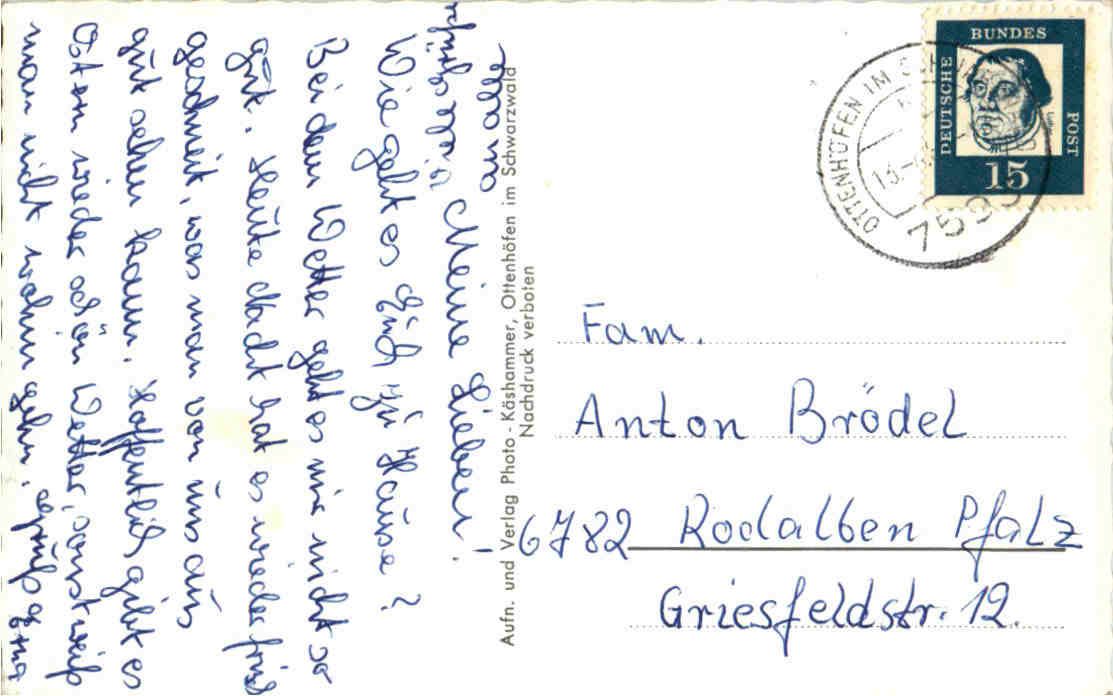 Meine Lieben!
Wie geht es Euch zu Hause?
Bei dem Wetter geht es mir nicht so
gut. Heute Nacht hat es wieder frisch
geschneit, was man von uns aus
gut sehen kann. Hoffentlich gibt es
Ostern wieder schön Wetter, sonst weiß
man nicht wohin gehn.
an alle
Aufn. und Verlag Photo - Käshammer, Ottenhöfen im Schwarzwald
Nachdruck verboten
DEUTSCHE
BUNDES
POST
15
OTTENHÖFEN IM
7593
Fam.
Anton Brödel
6782 Rodalben Pfalz
Griesfeldstr. 12.